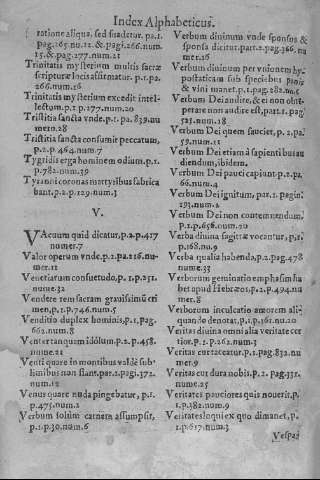 Index Alphabeticus.
ratione aliqua, sed suadetur. pa.1.
pag.165.nu.12.&.pagi.266.num.
15.&.pag.277.num.21
Trinitatis mysterium multis sacræ
scripturæ locis affirmatur. p.1.pa.
266.num.16
Trinitatis mysterium excedit intel-
lectum.p.1.p.177.num.20
Tristitia sancta vnde.p.1.pa.839.nu
mero.28
Tristitia sancta consumit peccatum,
p.2.p.464.num.7
Tygridis erga hominem odium.p.1.
p.782.num.39
Tyranni coronas martyribus fabrica
bant.p.2.p.129.num.3
V.
VAcuum quid dicatur,p.2.p.417
numer.7
Valor operum vnde.p.2.pa.216.nu-
mer.11
Venetiarum consuetudo, p.1.p.251.
nume.32
Vendere rem sacram grauissimũ cri
men,p.1.p.746.num.5
Venditio duplex hominis,p.1.pag.
662.num.8
Venter tanquam idolum.p.2.p.458.
nume.21
Venti quare in montibus valde sub-
limibus non fiant.par.2.pagi.372.
num.12
Venus quare nuda pingebatur, p.1.
p.475.num.2
Verbum solum carnem assumpsit,
p.1.p.30.num.6
Verbum diuinum vnde sponsus &
sponsa dicitur.part.2.pag.366.nu
mer.16
Verbum diuinum per vnionem hy-
postaticam sub speciebus panis
& vini manet.p.1.pag.282.nu.5
Verbum Dei audire, & ei non obtē-
perare non audire est,part.1.pag.
725.num.18
Verbum Dei quem sauciet, p.2.pa.
59.num.11
Verbum Dei etiam à sapienti bus au
diendum, ibidem.
Verbum Dei pauci capiunt.p.2.pa.
66.num.4
Verbum Dei ignitum, par.1.pagin.
193.num.2
Verbum Dei non contemnendum,
p.1.p.656.num.20
Verba diuina sagittæ vocantur, p,1.
p.168.nu.9
Verba qualia habenda,p.2.pag.478
nume.33
Verborum geminatio emphasim ha
bet apud Hebræos,p.2.p.494.nu
mer.8
Verborum inculcatio amorem ali-
quando denotat,p.1.p.161.nu.20
Veritas diuina omni alia veritate cer
tior.p.1.p.262.num.3
Veritas cur taceatur.p.2.pag.832.nu
mer.9
Veritas cur dura nobis.p.2.pag.331.
nume.25
Veritates pauciores quis nouerit.p.
1.p.182.num.9
Veritates loqui ex quo dimanet, p.
1.p.617.num.3
Vespas